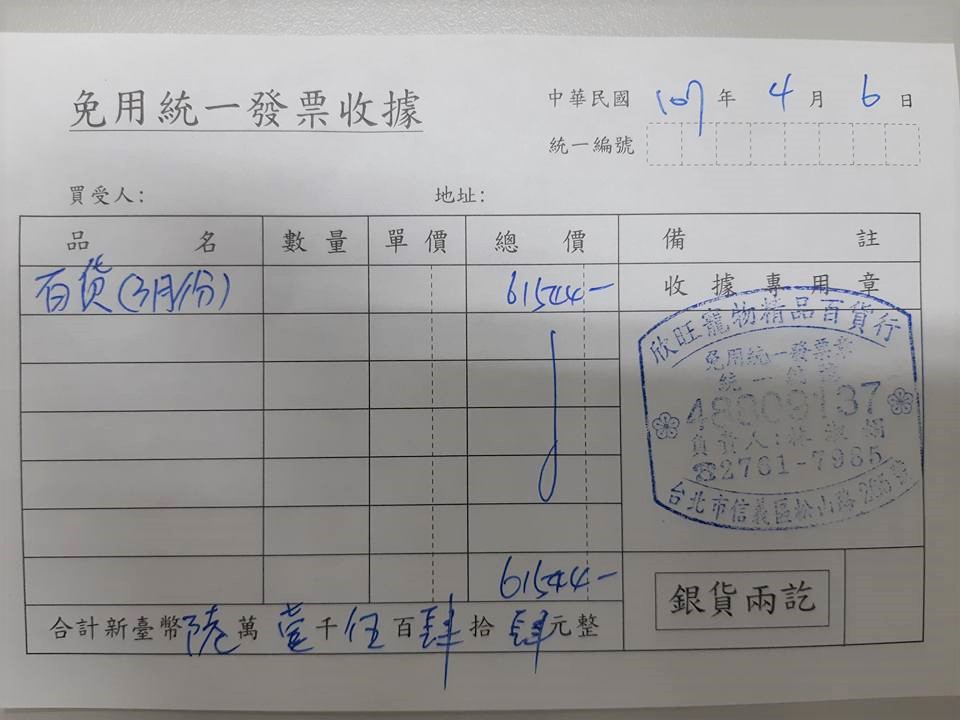 免用統一發票收據
中華民國 107 年 4 月 6 日
統一編號
買受人: 地址:
品名 數量 單價 總價 備註
百貨(3月份) 61544- 收據專用章
欣旺寵物精品百貨行
免用統一發票章
統一編號
48009137
負責人:林淑
☎2761-7965
台北市信義區松山路 號
61544-
銀貨兩訖
合計新臺幣陸萬壹千伍百肆拾肆元整